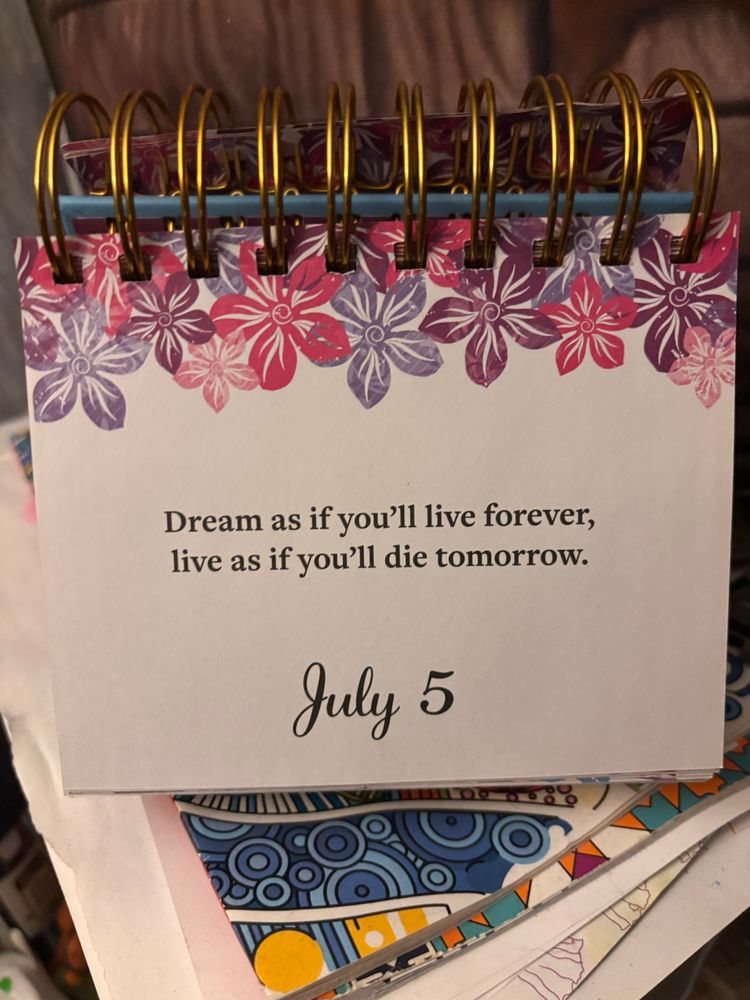 Dream as if you’ll live forever,
live as if you’ll die tomorrow.
July 5